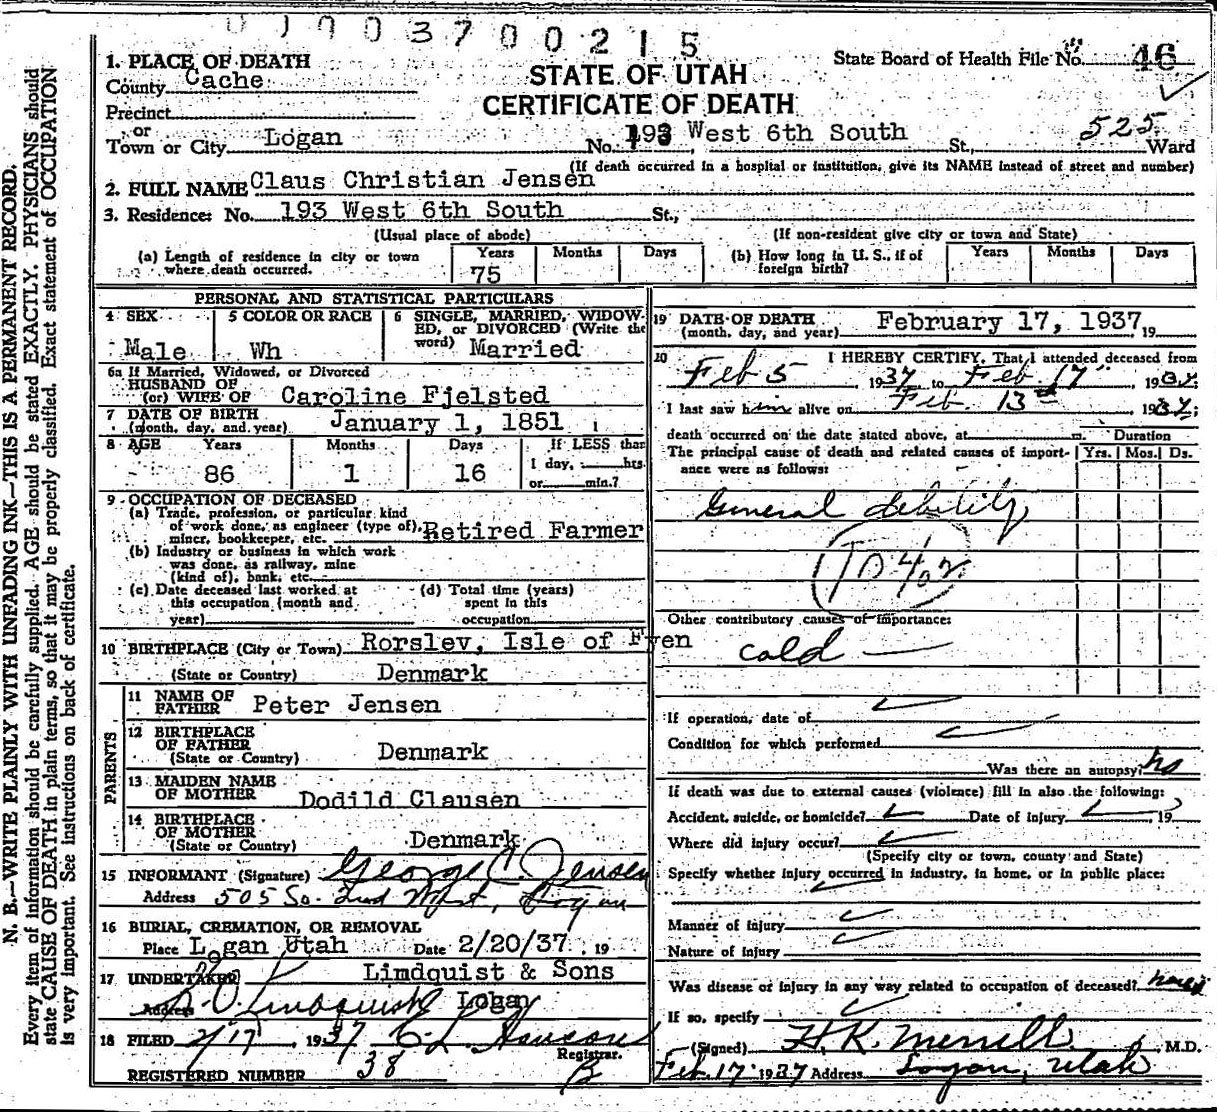 0190370 0215
1. PLACE OF DEATH
County Cache
Precinct
or
Town or City Logan
STATE OF UTAH
CERTIFICATE OF DEATH
State Board of Health File No. 46
No. 193 West 6th South St., 525 Ward
(If death occurred in a hospital or institution, give its NAME instead of street and number)
2. FULL NAME Claus Christian Jensen
3. Residence: No. 193 West 6th South St.,
(Usual place of abode) (If non-resident give city or town and State)
(a) Length of residence in city or town where death occurred. Years 75 Months Days
(b) How long in U. S., if of foreign birth? Years Months Days
PERSONAL AND STATISTICAL PARTICULARS
4 SEX Male
5 COLOR OR RACE Wh
6 SINGLE, MARRIED, WIDOWED, or DIVORCED (Write the word) Married
6a If Married, Widowed, or Divorced
HUSBAND OF
(or) WIFE OF Caroline Fjelsted
7 DATE OF BIRTH
(month, day, and year) January 1, 1851
8 AGE Years 86 Months 1 Days 16 If LESS than
1 day, hrs.
or min.?
9 OCCUPATION OF DECEASED
(a) Trade, profession, or particular kind
of work done, as engineer (type of),
miner, bookkeeper, etc. Retired Farmer
(b) Industry or business in which work
was done, as railway, mine
(kind of), bank, etc.
(c) Date deceased last worked at
this occupation (month and
year)
(d) Total time (years)
spent in this
occupation
10 BIRTHPLACE (City or Town) Rorslev, Isle of Fyen
(State or Country) Denmark
PARENTS
11 NAME OF
FATHER Peter Jensen
12 BIRTHPLACE
OF FATHER
(State or Country) Denmark
13 MAIDEN NAME
OF MOTHER Dodild Clausen
14 BIRTHPLACE
OF MOTHER
(State or Country) Denmark
15 INFORMANT (Signature) George C Jensen
Address 505 So. 2nd West, Logan
16 BURIAL, CREMATION, OR REMOVAL
Place Logan Utah Date 2/20/37 19
17 UNDERTAKER Limdquist & Sons
Address Lindquist Logan
18 FILED 2/17, 1937 Registrar.
REGISTERED NUMBER 38
19 DATE OF DEATH
(month, day, and year) February 17, 1937 19
20 I HEREBY CERTIFY, That I attended deceased from
Feb 5, 1937 to Feb 17", 1937
I last saw him alive on Feb. 13th 1937;
death occurred on the date stated above, at m. Duration
The principal cause of death and related causes of importance were as follows: Yrs. Mos. Ds.
General debility
Other contributory causes of importance:
cold
If operation, date of
Condition for which performed
Was there an autopsy? no
If death was due to external causes (violence) fill in also the following:
Accident, suicide, or homicide? Date of injury 19
Where did injury occur?
(Specify city or town, county and State)
Specify whether injury occurred in industry, in home, or in public place:
Manner of injury
Nature of injury
Was disease or injury in any way related to occupation of deceased?
If so, specify
(Signed) H. K. Merrill, M.D.
Feb. 17 1937 Address Logan, Utah
N. B.—WRITE PLAINLY WITH UNFADING INK—THIS IS A PERMANENT RECORD.
Every item of information should be carefully supplied. AGE should be stated EXACTLY. PHYSICIANS should
state CAUSE OF DEATH in plain terms, so that it may be properly classified. Exact statement of OCCUPATION
is very important. See instructions on back of certificate.